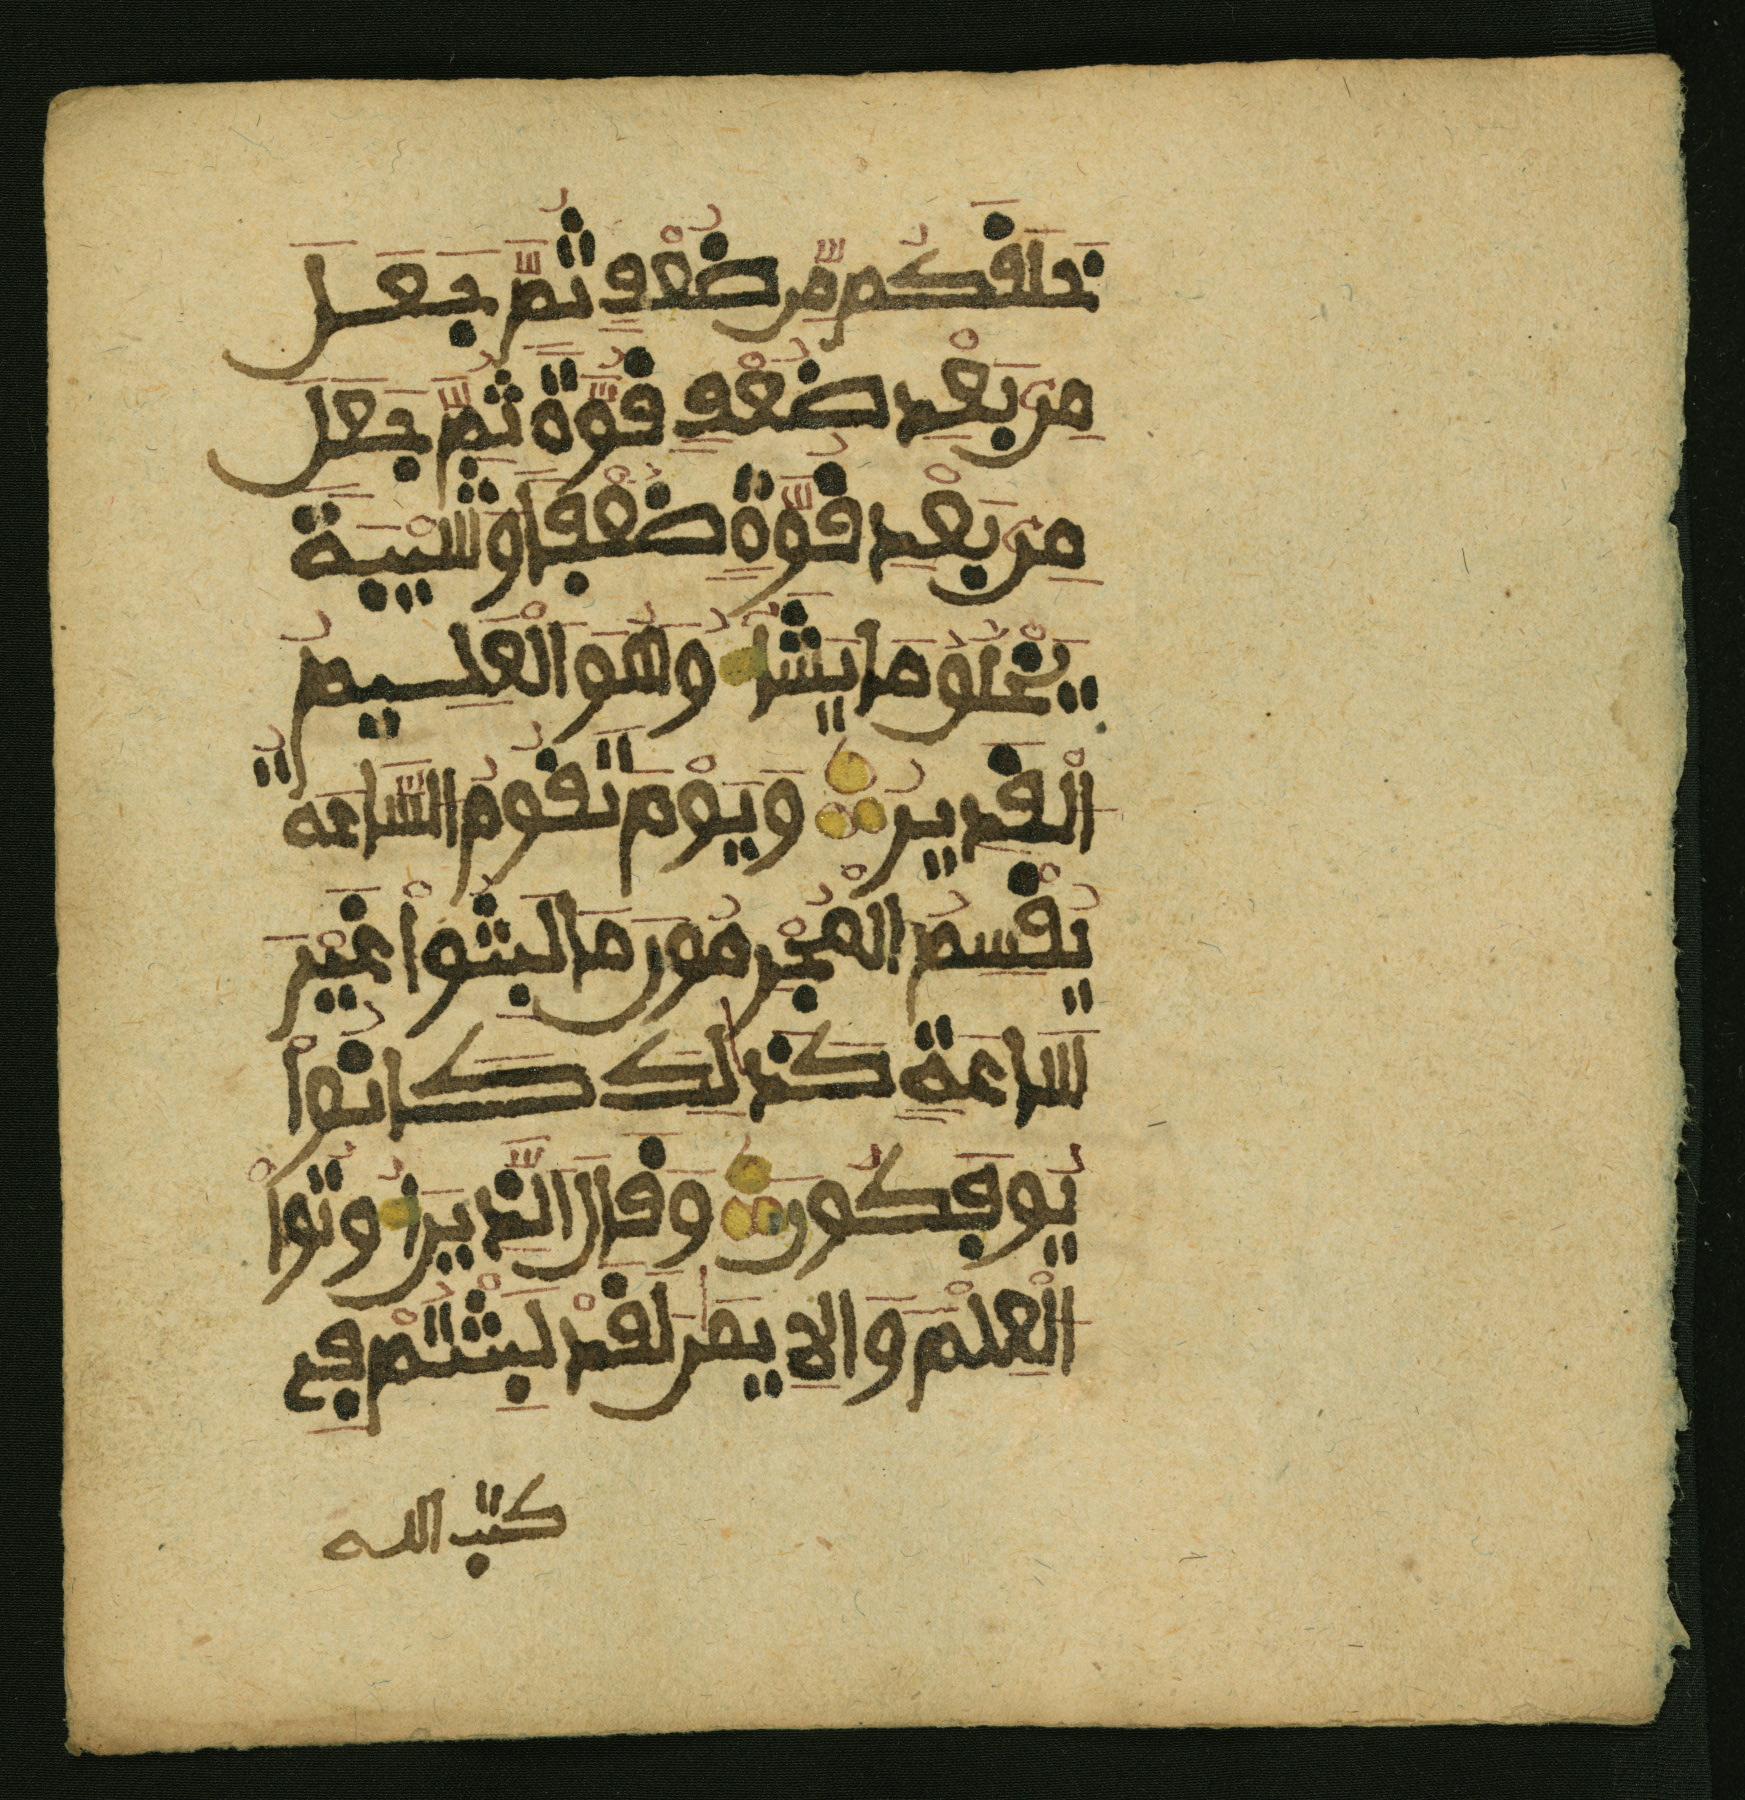 خَلَقَكُم مِّن ضُعْفٍ ثُمَّ جَعَلَ
مِنۢ بَعْدِ ضُعْفٍ قُوَّةً ثُمَّ جَعَلَ
مِنۢ بَعْدِ قُوَّةٍ ضُعْفًا وَشَيْبَةً
يَخْلُقُ مَا يَشَآءُ وَهُوَ الْعَلِيمُ
الْقَدِيرُ وَيَوْمَ تَقُومُ السَّاعَةُ
يُقْسِمُ الْمُجْرِمُونَ مَا لَبِثُواْ غَيْرَ
سَاعَةٍ كَذَٰلِكَ كَانُواْ
يُوفَكُونَ وَقَالَ الَّذِينَ أُوتُواْ
الْعِلْمَ وَالِايمَٰنَ لَقَدْ لَبِثْتُمْ فِي
كتب الله